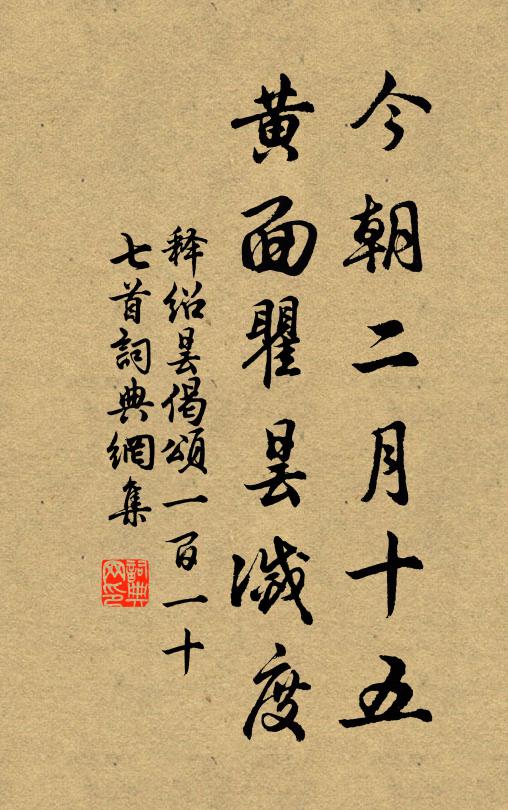 今朝二月十五
黄面瞿昙滅度
释绍昙偈頌一百一十
七首詞典網集
詞典網印